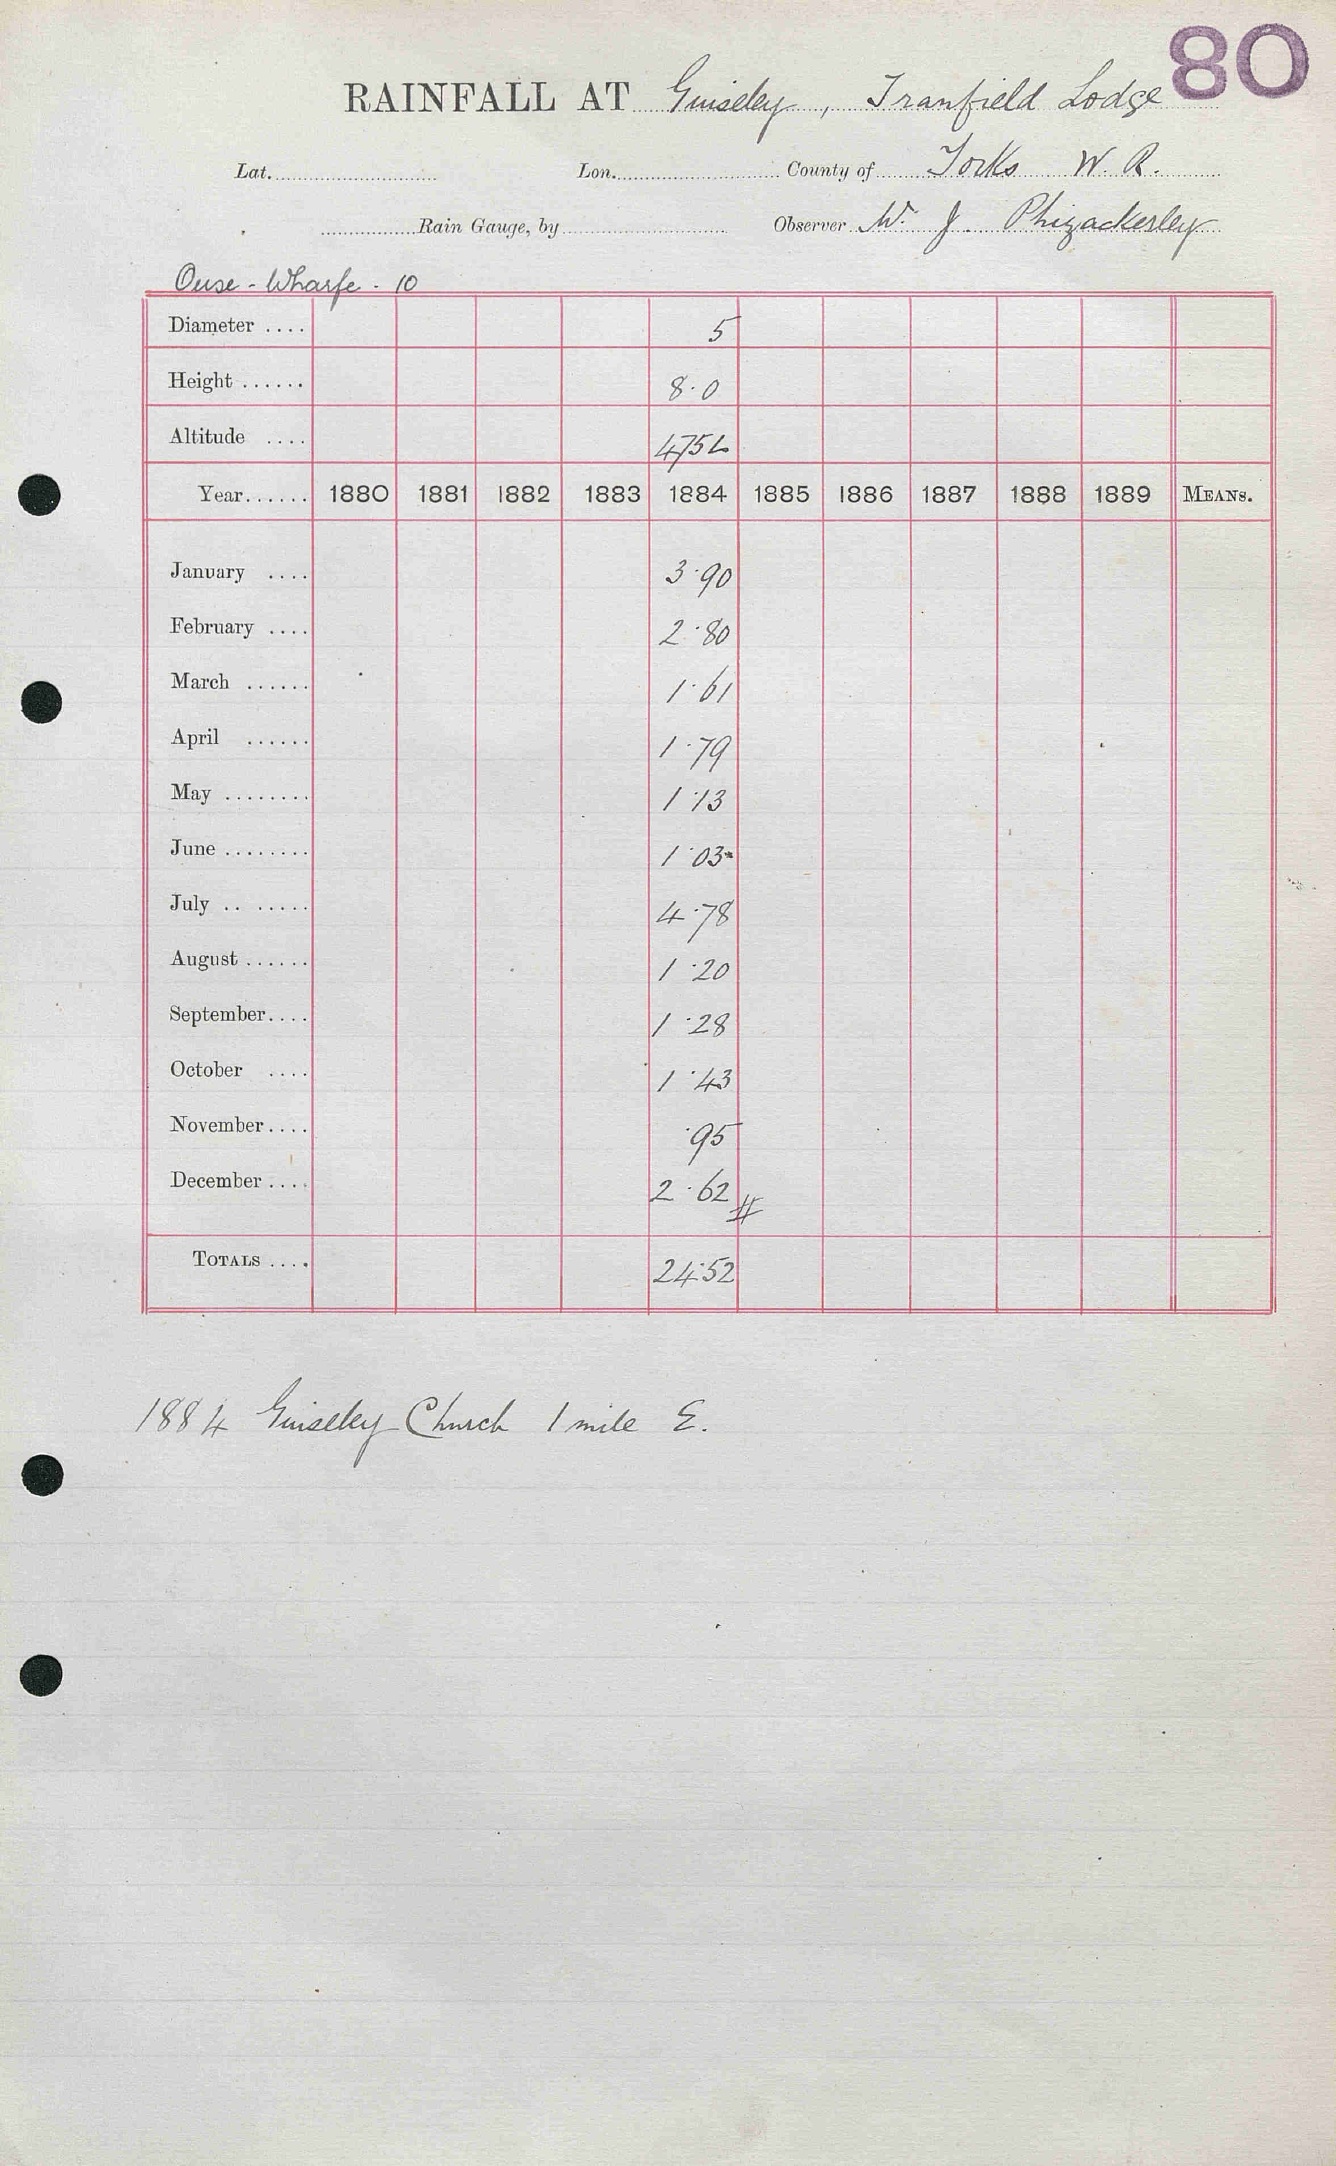 80
RAINFALL AT Guiseley, Tranfield Lodge
Lat. Lon. County of Yorks W. R.
Rain Gauge, by Observer W. J. Phizackerley
Ouse - Wharfe - 10
Diameter .... 5
Height ...... 8·0
Altitude ....
Year...... 1880 1881 1882 1883 1884 1885 1886 1887 1888 1889 MEANS.
January .... 3·90
February .... 2·80
March ...... 1·61
April ...... 1·79
May ........ 1·13
June ........ 1·03
July .. ..... 4·78
August ...... 1·20
September.... 1·28
October .... 1·43
November.... ·95
December .... 2·62 #
TOTALS .... 24·52
1884 Guiseley Church 1 mile E.